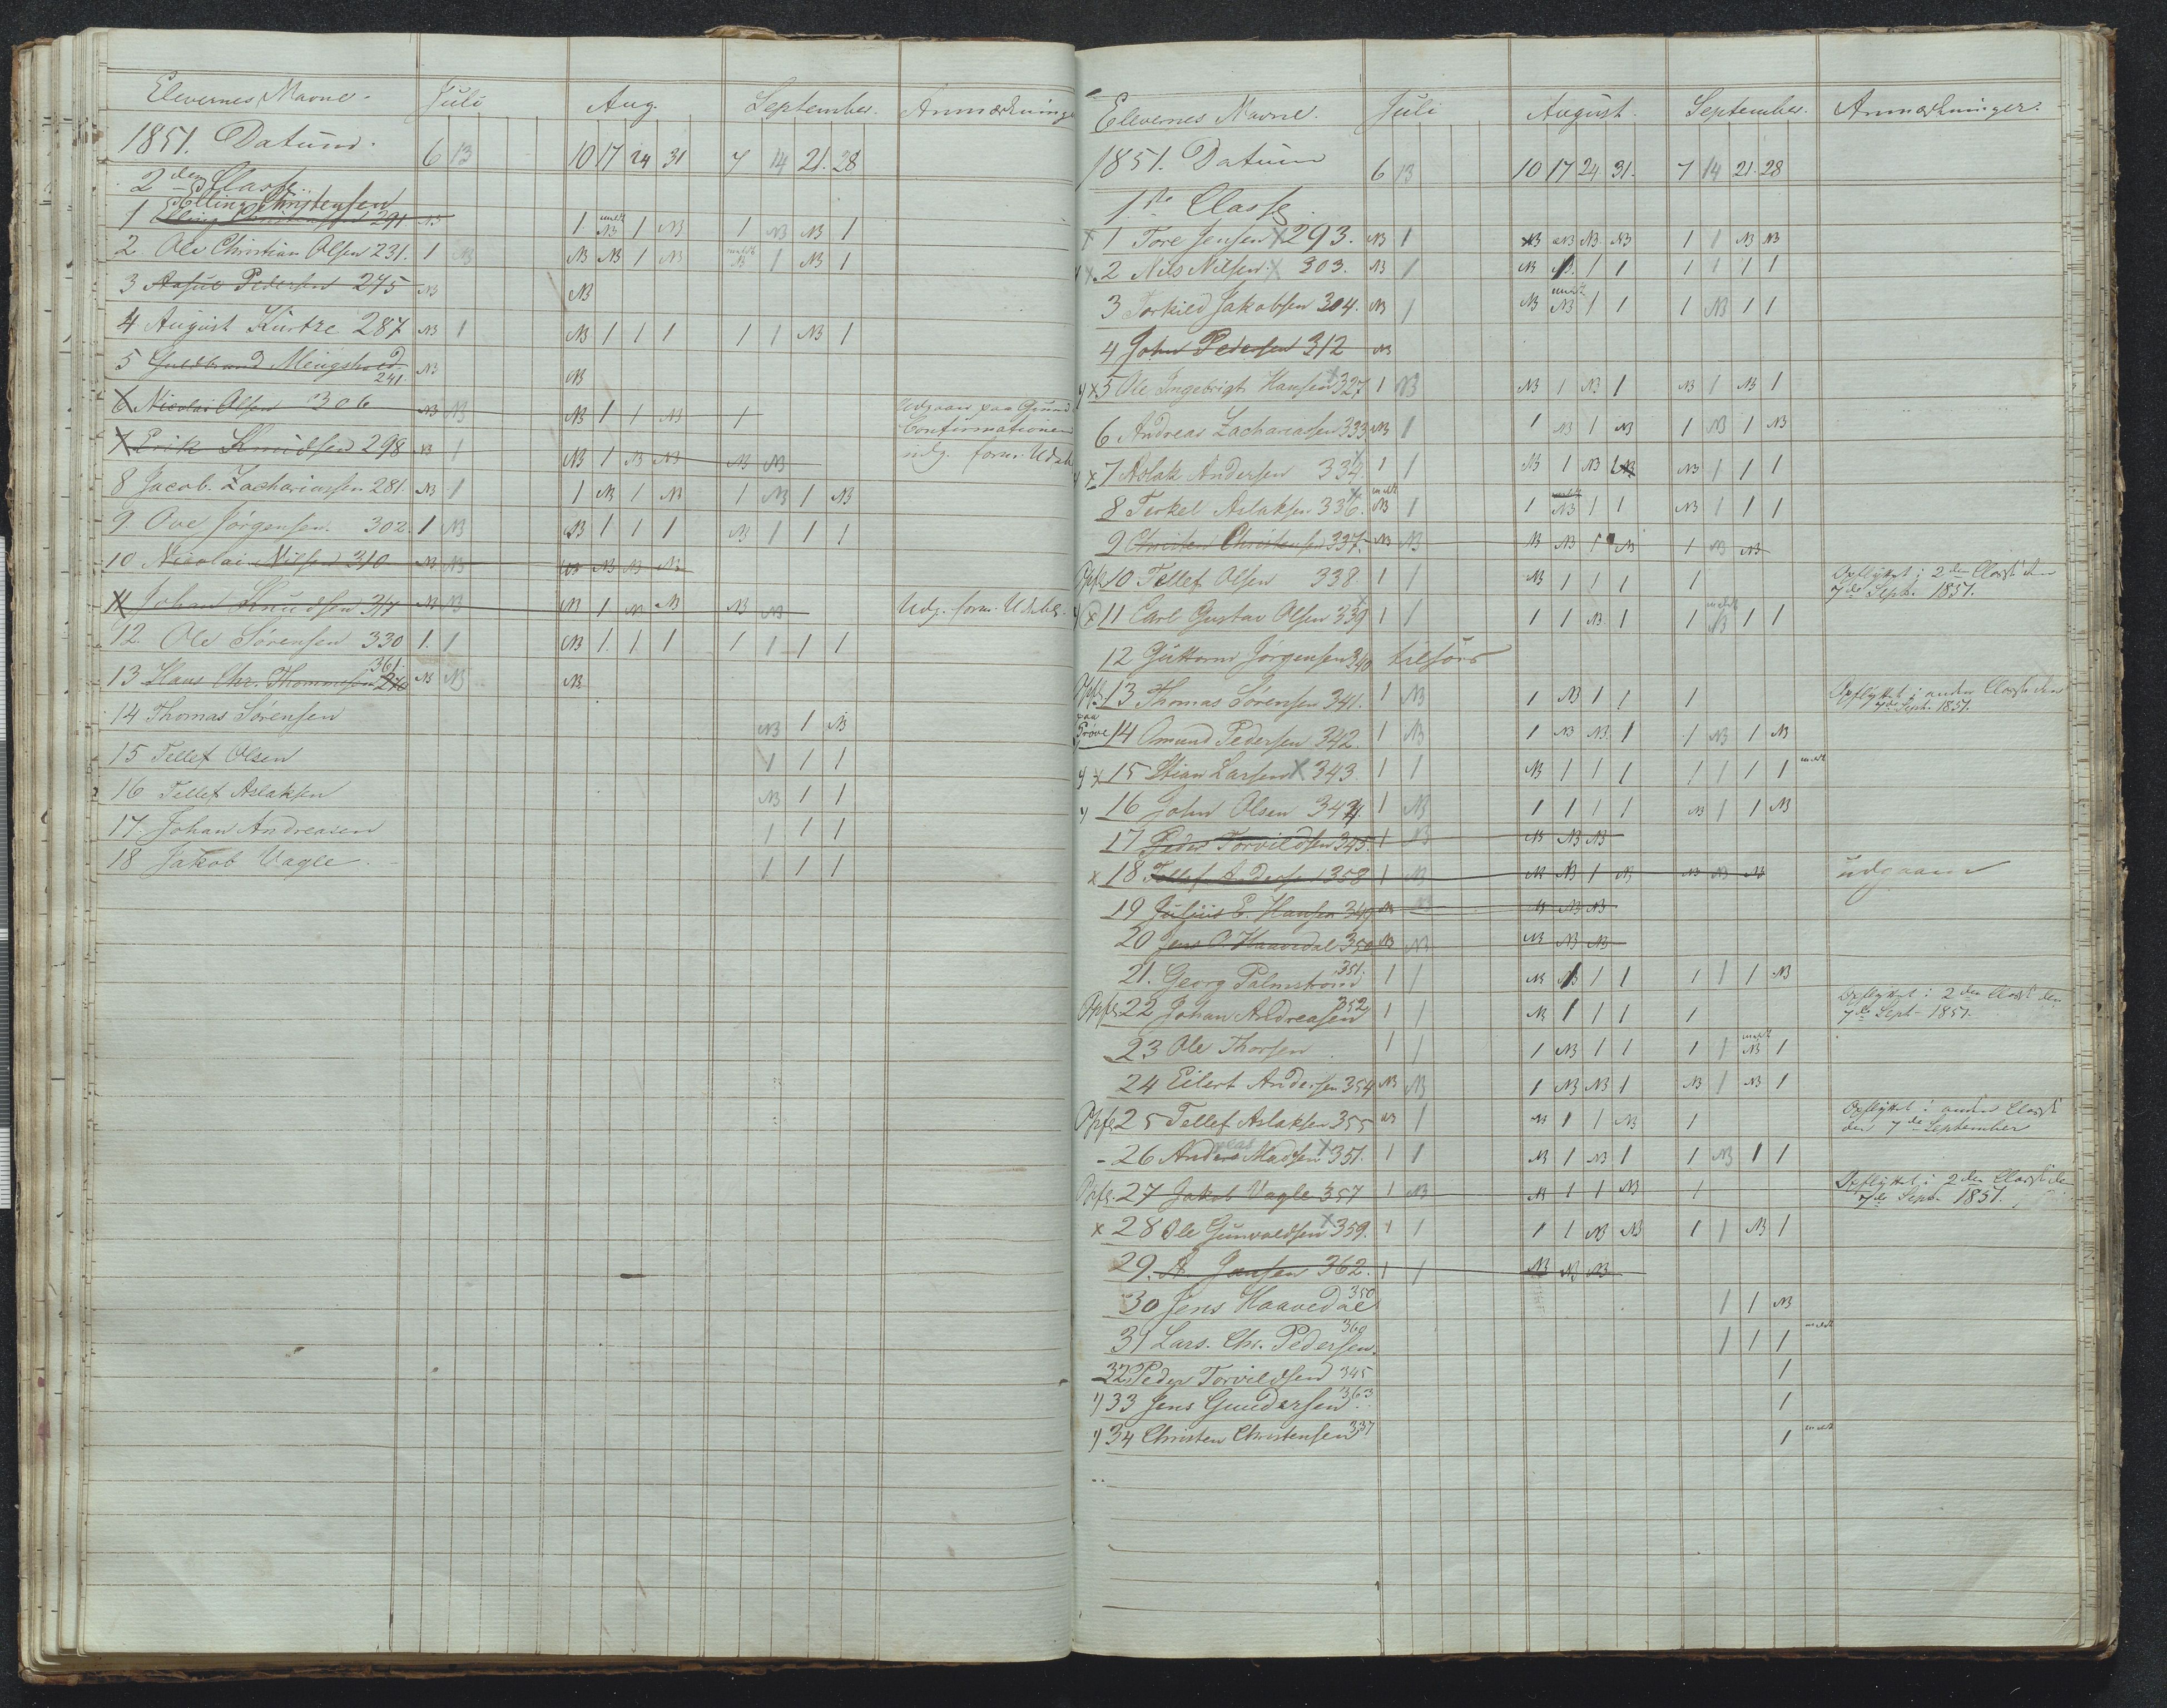 Elevernes Navne. Juli Aug. September. Anmærkninge
1851. Datum. 6 13 10 17 24 31 7 14 21. 28
2den Classe.
Elling Christensen
1 Elling Christensen 291 NB 1 NB 1 NB 1 NB NB 1
2. Ole Christian Olsen 231. 1 NB NB NB 1 NB NB 1 NB 1
3 Aasul Pedersen 275 NB NB
4 August Kurtze 287 NB 1 NB 1 1 1 1 1 NB 1
5 Guldbrand Mengshoed 241. NB NB
6 Nicolai Olsen 306 NB NB NB 1 1 NB 1 Udgaaet paa Grund
Confirmationen
7 Erik Knudsen 298 NB 1 NB 1 NB NB NB NB udg. form. Udebl
8 Jacob Zachariassen 281. NB 1 1 NB 1 NB 1 NB 1 NB
9. Ove Jørgensen. 302. 1 NB NB 1 1 1 NB 1 1 1
10 Nicolai Nilsen 310 NB NB NB NB NB NB
11 Johan Knudsen 317 NB NB NB 1 NB NB NB NB Udg. form. Udebl.
12. Ole Sørensen 330 1. 1 NB 1. 1 1 1 1 1 1
361.
13 Hans Chr. Thommesen 270 NB NB NB
14 Thomas Sørensen NB 1 NB
15 Tellef Olsen 1 1 1
16 Tellef Aslaksen NB 1 1
17. Johan Andreasen 1 1 1
18 Jakob Vagle 1 1 1
Elevernes Navne. Juli August. September. Anmærkninger.
1851. Datum 6 13 10 17 24 31. 7 14 21. 28
1ste Classe.
x 1 Tore Jensen x 293. NB 1 NB NB NB NB 1 1 NB NB
x 2 Nils Nilsen. x 303. NB 1 NB 1 1 1 1 1 1
3 Torkild Jakobsen 304. NB 1 NB NB 1 1 1 NB 1 1
4 John Pedersen 312 NB
x 5 Ole Ingebrigt Hansen x 327 1 NB NB 1 NB 1 NB 1 NB 1
6 Andreas Zachariassen 333 NB 1 1 NB 1 NB 1 NB 1 NB
x 7 Aslak Andersen 334. 1 1 NB 1 NB 1 NB 1 1 1
8 Terkel Aslaksen 336. NB 1 1 NB 1 1 NB 1 1 1
9 Christen Christensen 337. NB NB NB NB 1 NB 1 NB NB
Opfl. 10 Tellef Olsen 338. 1 1 NB 1 1 1 1 Opflyttet i 2den Classe den
7de Septb. 1851.
x 11 Carl Gustav Olsen 339 1 1 1 1 NB 1 1 NB 1 1
12 Guttorm Jørgensen 340 tilsøes
Opfl. 13 Thomas Sørensen 341. 1 NB 1 NB 1 1 1 Opflyttet i anden Classe den
7de Septb. 1851.
paa
Prøve 14 Omund Pedersen 342. 1 NB 1 NB NB. 1 1 NB 1 NB
x 15 Stian Larsen x 343. 1 1 NB 1 1 1 1 1 1 1
16 John Olsen 344. 1 NB 1 1 1 1 NB 1 1 NB
17 Peder Torvildsen 345 1 NB NB NB NB
x 18 Tellef Andersen 358 1 NB NB NB 1 NB NB NB NB udgaaet
19 Julius E. Hansen 349 NB NB NB NB NB
20 Jens O. Haavedal 350 NB NB NB NB NB
21. Georg Palmstrøm 351. 1 1 NB 1 1 1 1 1 NB
Opfl. 22 Johan Andreasen 352 1 1 NB 1 1 1 1 Opflyttet i 2den Classe den
7de Septb. 1851.
23 Ole Thorsen 1 1 1 NB 1 1 1 1 NB 1
24 Eilert Andersen 354 NB NB 1 NB NB 1 NB 1 NB 1
Opfl. 25 Tellef Aslaksen 355 NB 1 NB 1 1 NB 1 Opflyttet i anden Classe
den 7de September
- 26 Anders Madsen x 351. 1 1 NB 1 NB 1 1 NB 1 1
Opfl. 27 Jakob Vagle 357 1 NB NB 1 1 NB 1 Opflyttet i 2den Classe den
7de Septb. 1851.
x 28 Ole Gunvaldsen x 359. 1 1 1 1 NB NB 1 1 NB 1
29. A. Jansen 362. 1 1 NB NB NB
30 Jens Haavedal 350 1 1 NB
31 Lars. Chr. Pedersen. 360 1 1 1
32 Peder Torvildsen 345 1
33 Jens Gundersen 363 1
34 Christen Christensen 337 1